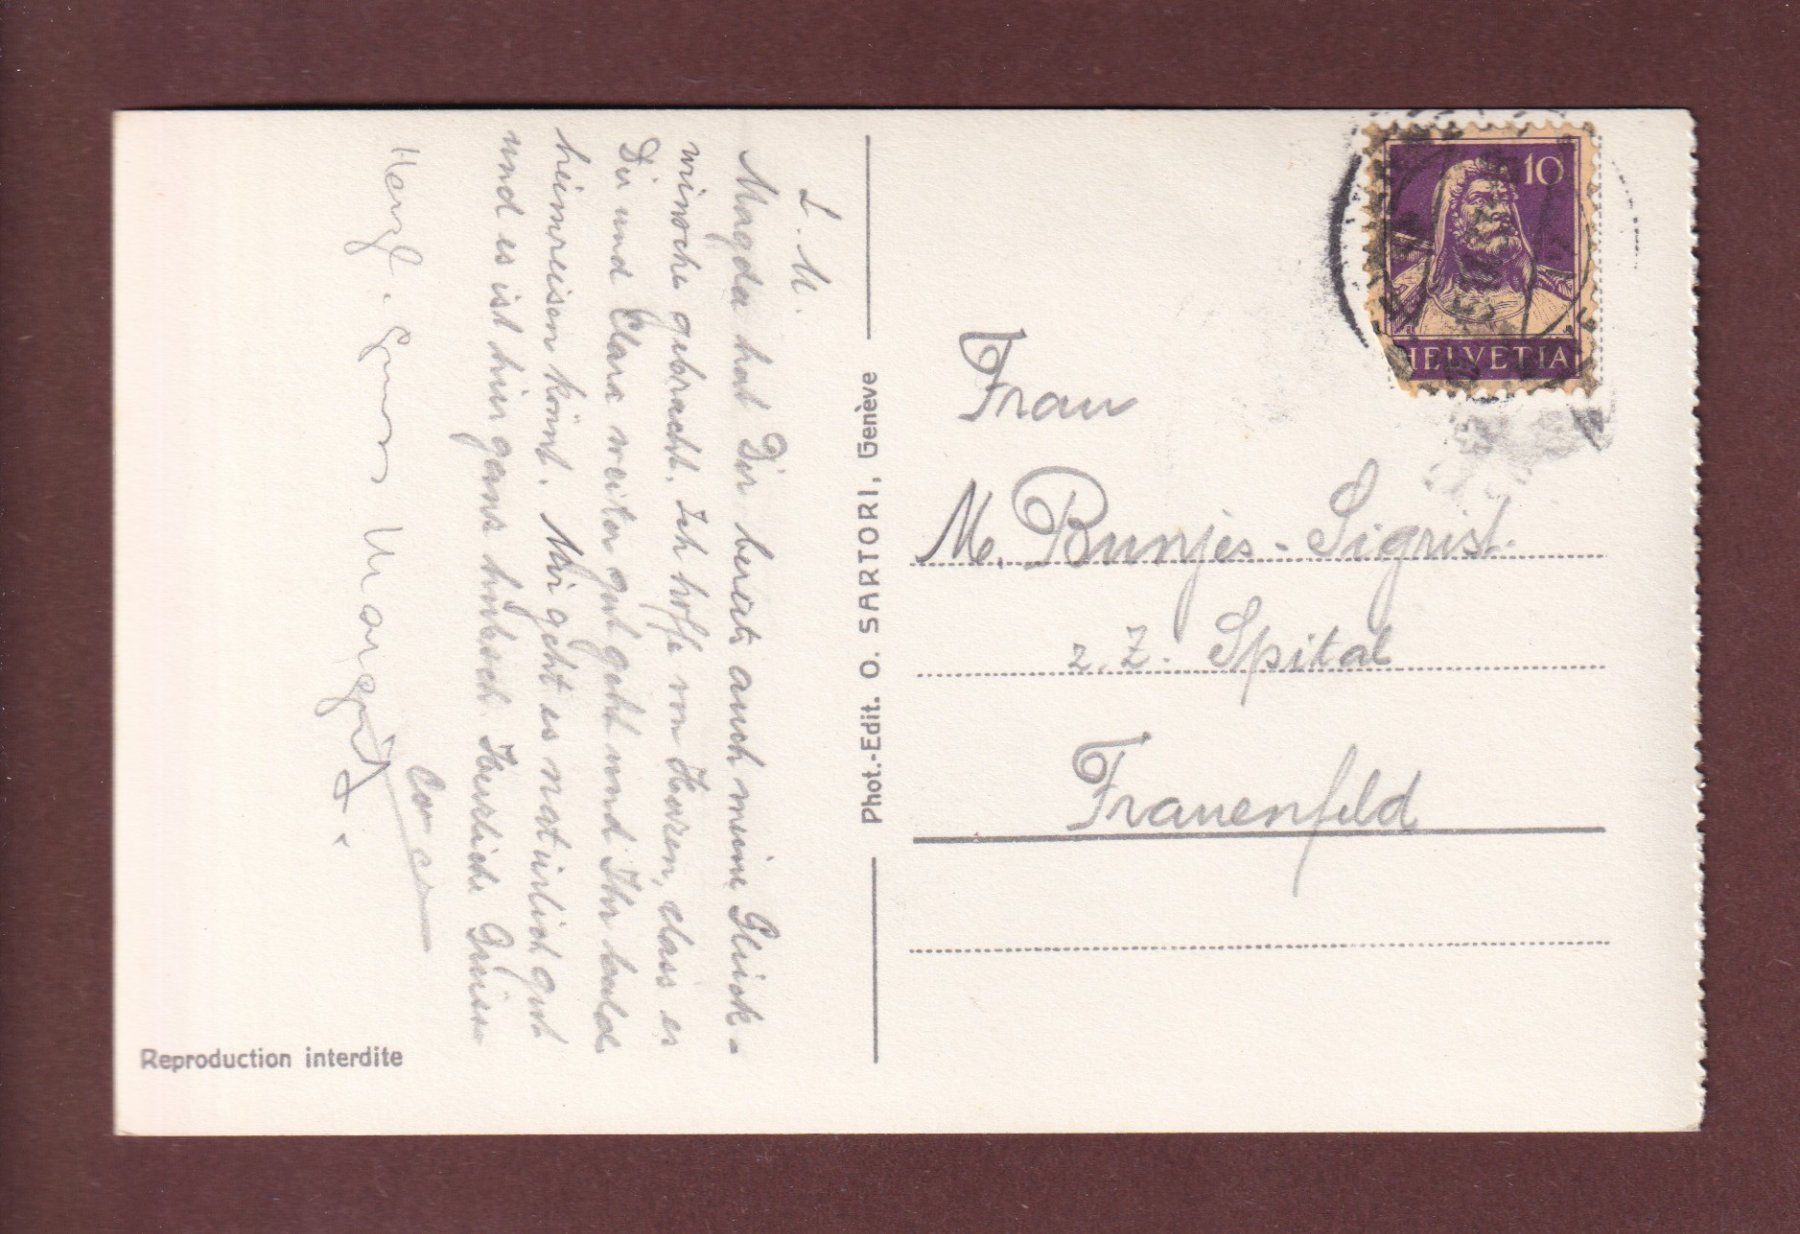 L. M.
Magda hat Dir bereits auch meine Glück-
wünsche gebracht. Ich hoffe von Herzen, dass es
Dir und Clara weiter gut geht und Ihr bald
heimreisen könnt. Mir geht es natürlich gut
und es ist hier ganz hübsch. Herzliche Grüsse
Herzl. Grüsse Margrit
Reproduction interdite
Phot.-Edit. O. SARTORI, Genève
10
HELVETIA
Frau
M. Bunjes-Sigrist.
z. Z. Spital
Frauenfeld